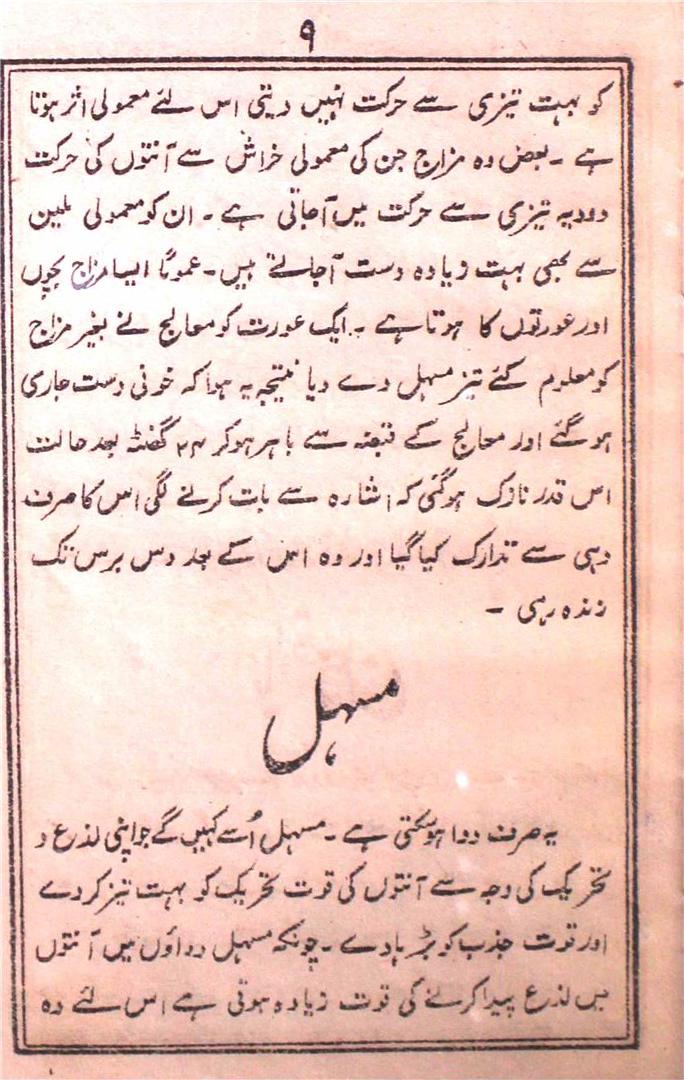 ۹
کو بہت تیزی سے حرکت نہیں دیتی اس لئے معمولی اثر ہوتا
ہے ۔ بعض وہ مزاج جن کی معمولی خراش سے آنتوں کی حرکت
دودیہ تیزی سے حرکت میں آجاتی ہے ۔ ان کو معمولی ملین
سے بھی بہت زیادہ دست آجاتے ہیں ۔ عموماً ایسا مزاج بچوں
اور عورتوں کا ہوتا ہے ۔ ایک عورت کو معالج نے بغیر مزاج
کو معلوم کئے تیز مسہل دے دیا نتیجہ یہ ہوا کہ خونی دست جاری
ہوگئے اور معالج کے قبضہ سے باہر ہوکر ۲۴ گھنٹہ بعد حالت
اس قدر نازک ہوگئی کہ اشارہ سے بات کرنے لگی اس کا صرف
دہی سے تدارک کیا گیا اور وہ اس کے بعد دس برس تک
زندہ رہی ۔
مسہل
یہ صرف دوا ہوسکتی ہے ۔ مسہل اُسے کہیں گے جو اپنی لذرع و
تحریک کی وجہ سے آنتوں کی قوت تحریک کو بہت تیز کردے
اور قوت جذب کو بڑہادے ۔ چونکہ مسہل دواؤں میں آنتوں
میں لذرع پیدا کرنے کی قوت زیادہ ہوتی ہے اس لئے وہ